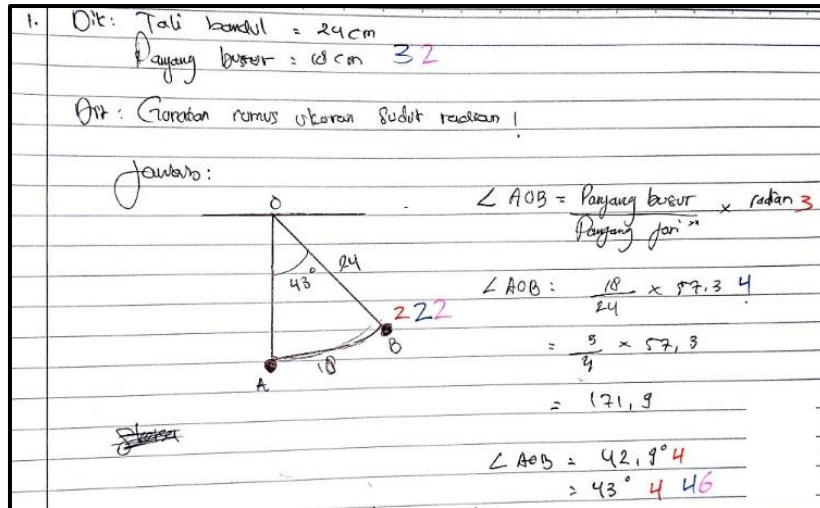 1. Dik: Tali bandul = 24 cm
Panjang busur = 18 cm 32
Dit: Gunakan rumus ukuran sudut radian!
Jawab:
O
43°
24
222
B
18
A
∠ AOB = Panjang busur / Panjang jari" × radian 3
∠ AOB : 18/24 × 57.3 4
= 3/4 × 57,3
= 171,9
∠ AOB = 42,9° 4
= 43° 4 46